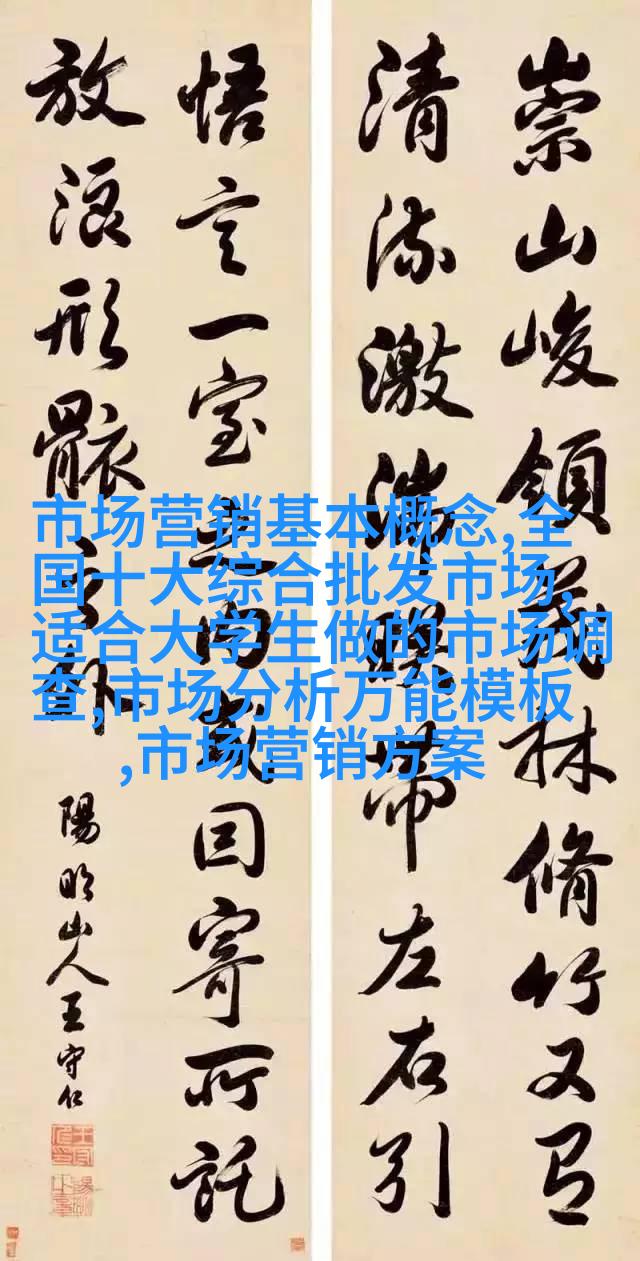 崇山峻領茂林脩竹又有
清流激湍暎帶左右引
悟言一室之内或因寄所託
放浪形骸之外
陽明山人王守仁
市场营销基本概念,全
国十大综合批发市场,
适合大学生做的市场调
查,市场分析万能模板
,市场营销方案